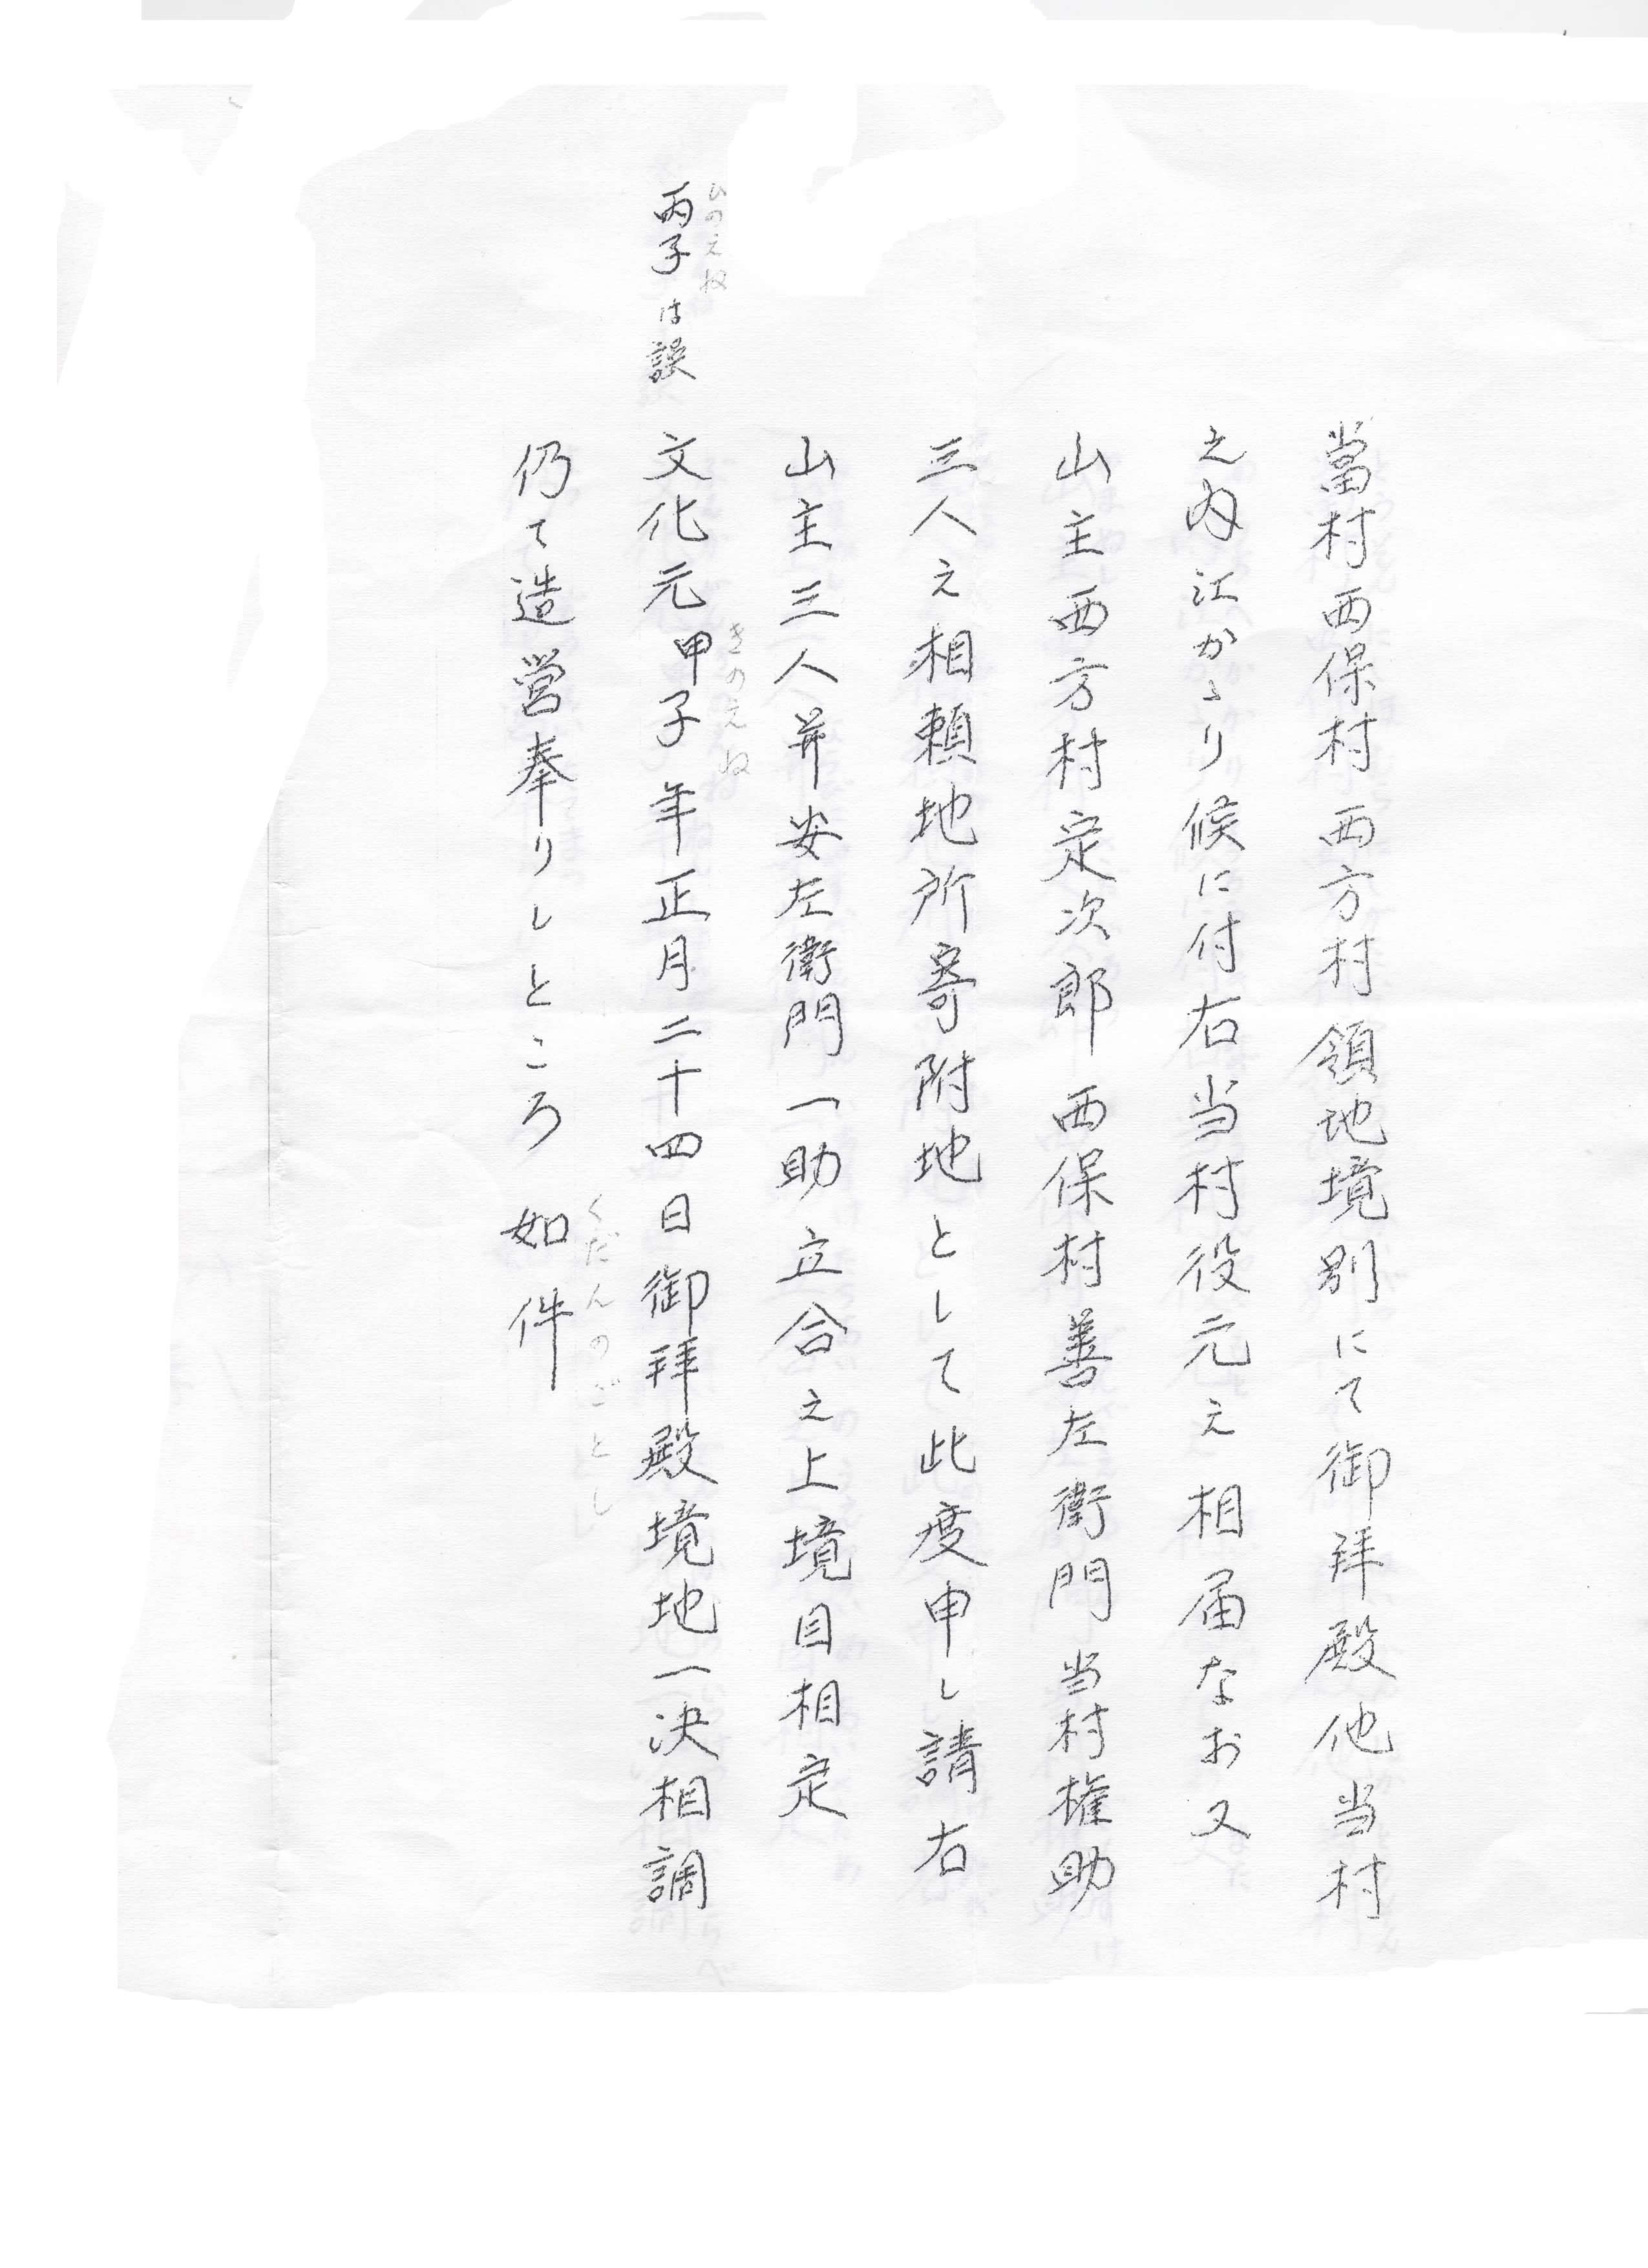 當村西保村西方村領地境別にて御拜殿他当村
之内江かゝり候に付右当村役元え相届なお又
山主西方村定次郎西保村善左衛門当村権助
三人え相頼地所寄附地として此度申し請右
山主三人并安左衛門一助立合之上境目相定
ひのえね
丙子は誤
きのえね
文化元甲子年正月二十四日御拝殿境地一決相調
くだんのごとし
仍て造営奉りしところ如件